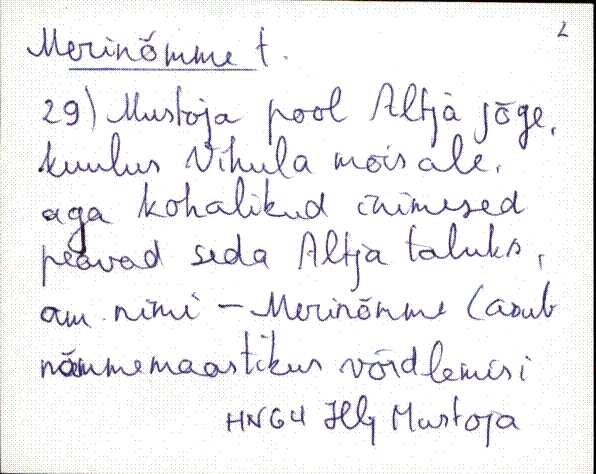 2
Merinõmme t.
29) Mustoja pool Altja jõge,
kuulus Vihula mõisale,
aga kohalikud inimesed
peavad seda Altja taluks,
am. nimi - Merinõmme (asub
nõmmemaastikus võrdlemisi
HNG4 Hlj Mustoja